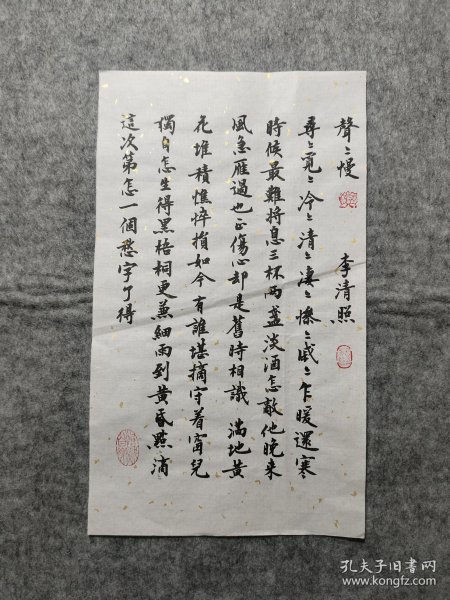 聲〻慢 李清照
尋〻覓〻冷〻清〻凄〻慘〻戚〻乍暖還寒
時候最難將息三杯兩盞淡酒怎敵他晚來
風急雁過也正傷心却是舊時相識 滿地黄
花堆積憔悴損如今有誰堪摘守着窗兒
獨自怎生得黑梧桐更兼細雨到黄昏點滴
這次第怎一個愁字了得
孔夫子旧书网
www.kongfz.com